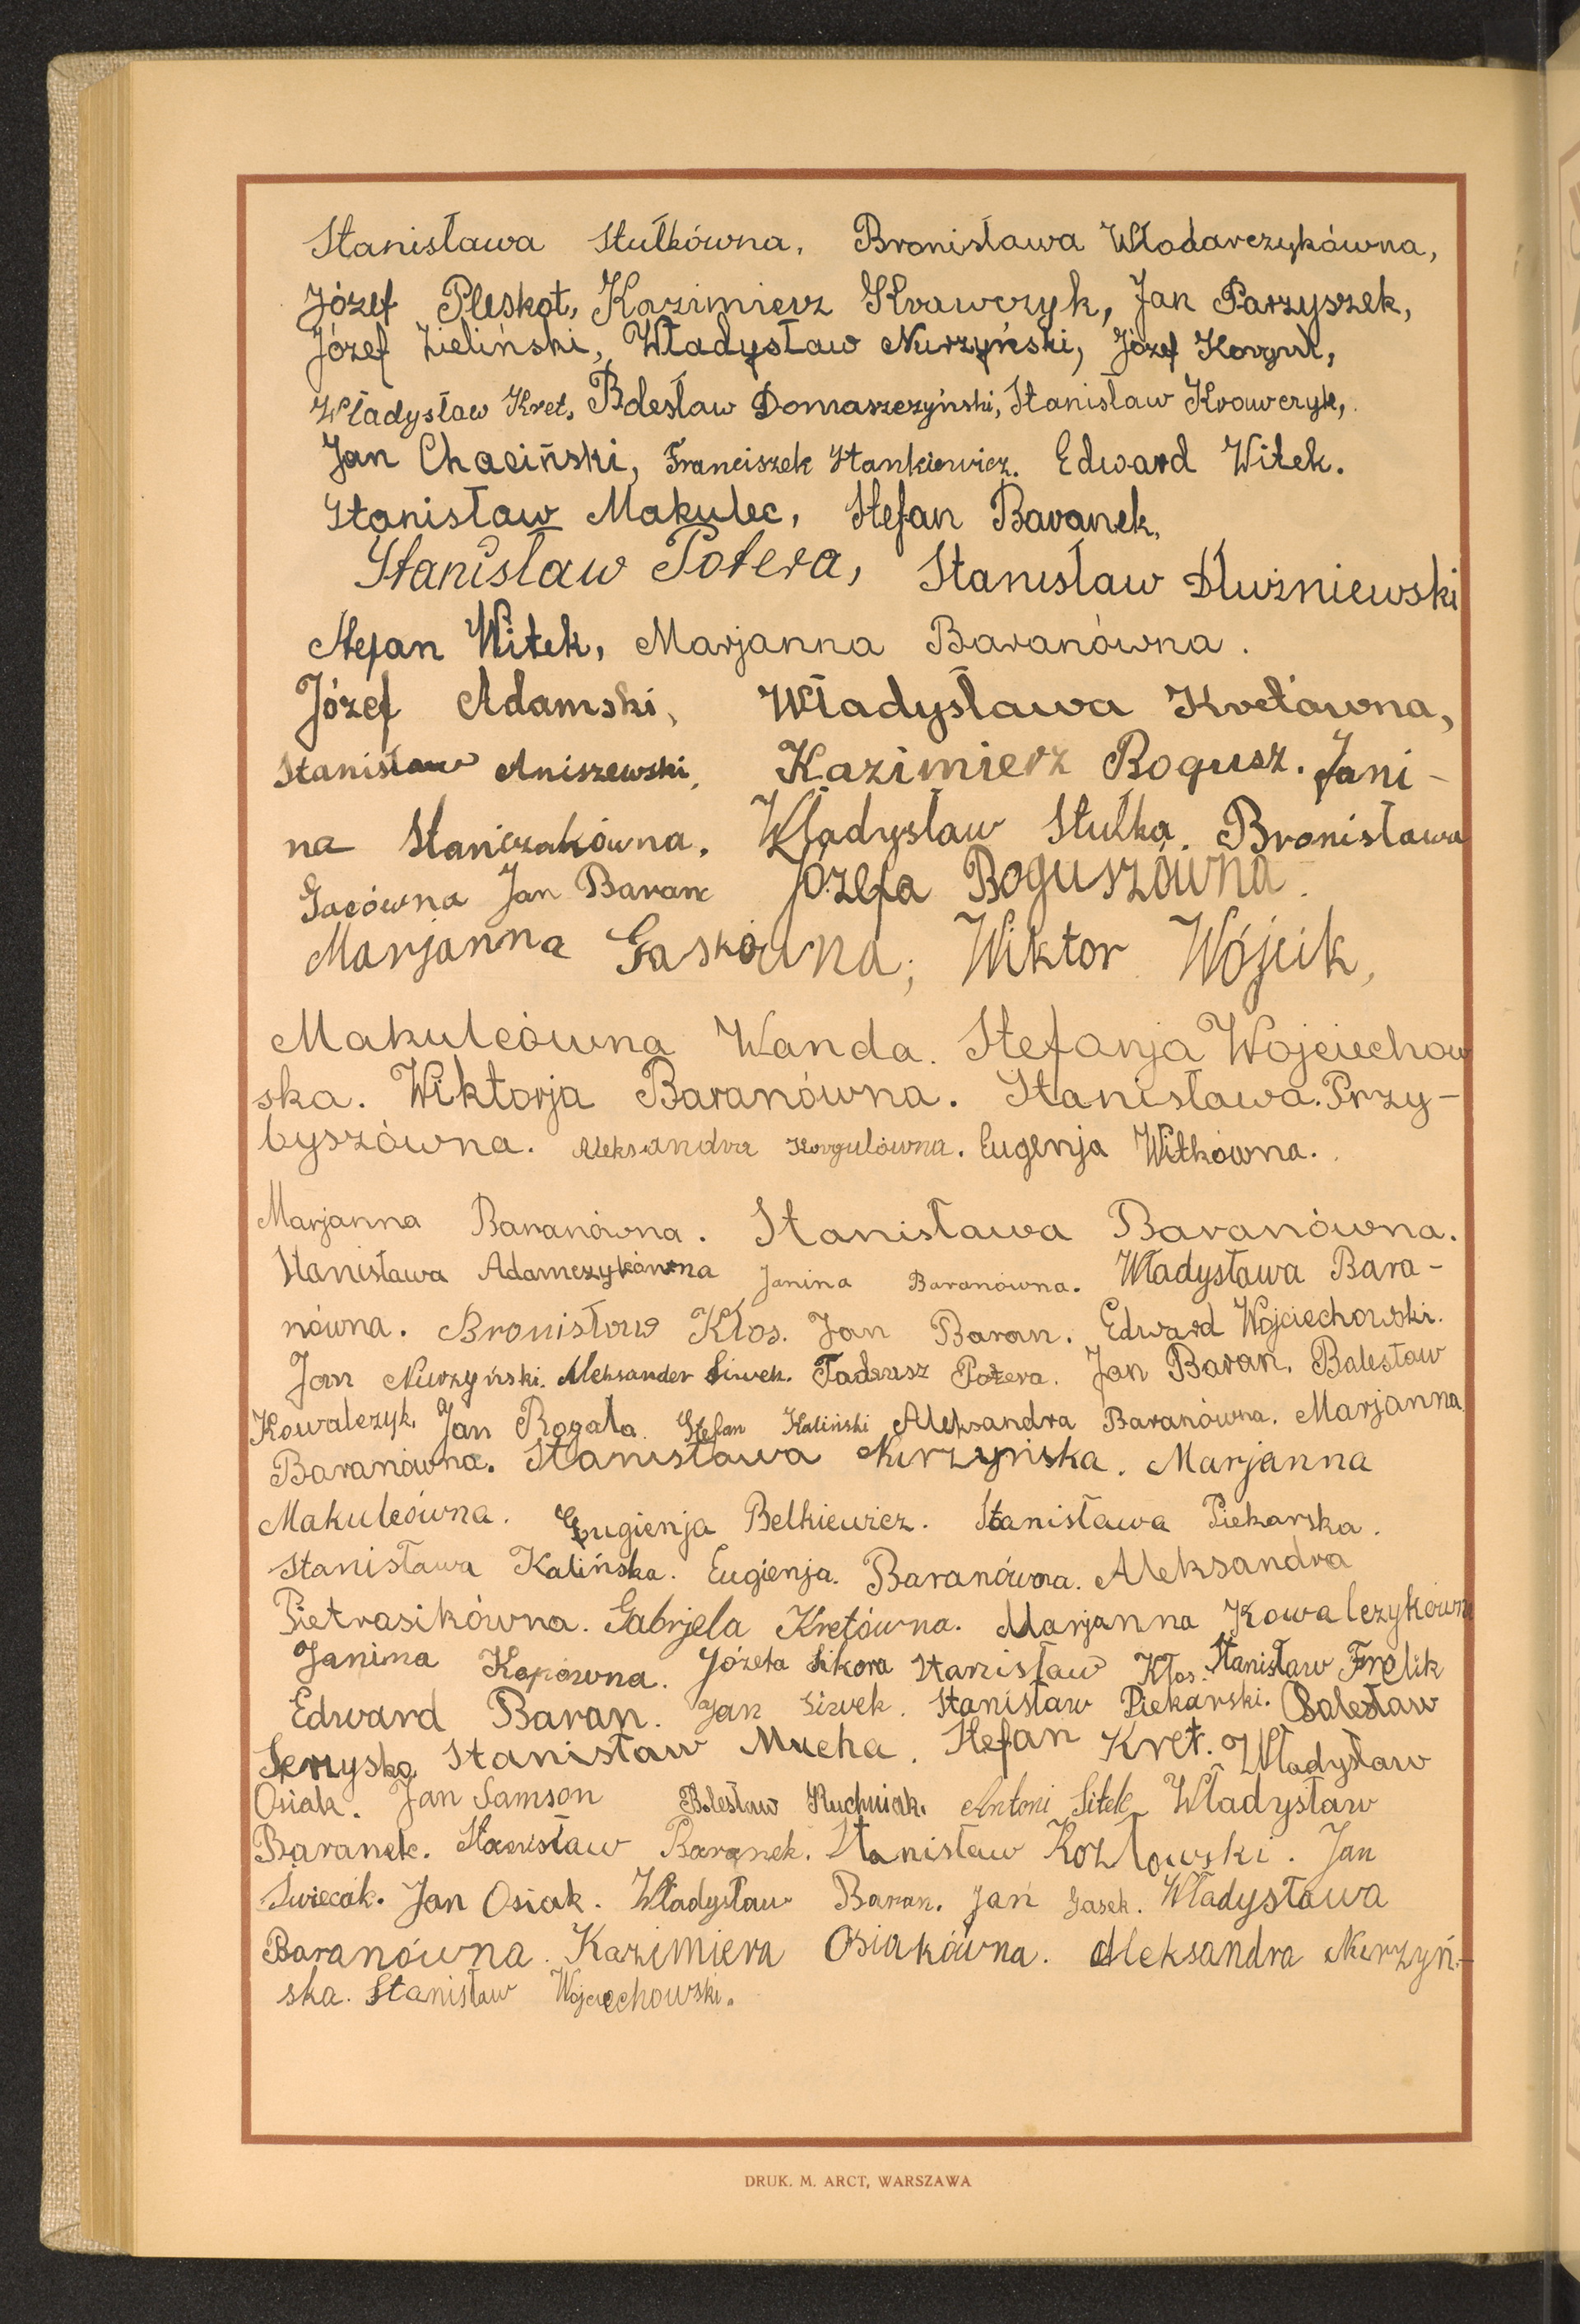 Stanisława Stułkówna, Bronisława Włodarczykówna,
Józef Pleskot, Kazimierz Krawczyk, Jan Parzyszek,
Józef Zieliński, Władysław Nurzyński, Józef Korgul,
Władysław Kret, Bolesław Domaszczyński, Stanisław Krawczyk,
Jan Chaciński, Franciszek Stankiewicz. Edward Witek.
Stanisław Makulec, Stefan Baranek,
Stanisław Potera, Stanisław Dłużniewski
Stefan Witek, Marjanna Baranówna.
Józef Adamski, Władysława Kretówna,
Stanisław Aniszewski, Kazimierz Bogusz. Jani-
na Stańczakówna, Władysław Stułka, Bronisława
Gacówna Jan Baran Józefa Boguszówna.
Marjanna Gaskówna, Wiktor Wójcik,
Makulcówna Wanda. Stefanja Wojciechow
ska. Wiktorja Baranówna. Stanisława Przy-
byszówna. Aleksandra Korgulówna. Eugenja Witkówna.
Marjanna Baranówna. Stanisława Baranówna.
Stanisława Adamczykówna Janina Baranówna. Władysława Bara-
nówna. Bronisław Kłos. Jan Baran. Edward Wojciechowski.
Jan Nurzyński. Aleksander Siwek. Tadeusz Potera. Jan Baran. Bolesław
Kowalczyk. Jan Rogala. Stefan Kaliński Aleksandra Baranówna. Marjanna
Baranówna. Stanisława Nurzyńska. Marjanna
Makulcówna. Eugienja Belkiewicz. Stanisława Piekarska.
Stanisława Kalińska. Eugienja. Baranówna. Aleksandra
Pietrasikówna. Gabrjela Kretówna. Marjanna Kowalczykówna
Janina Kopciówna. Józefa Sikora Stanisław Kłos. Stanisław Frelik
Edward Baran. Jan Siwek. Stanisław Piekarski. Bolesław
Serzysko Stanisław Mucha. Stefan Kret. Władysław
Osiak. Jan Samson Bolesław Kuchniak. Antoni Sitek Władysław
Baranek. Stanisław Baranek. Stanisław Kozłowski. Jan
Świecak. Jan Osiak. Władysław Baran. Jan Gasek. Władysława
Baranówna. Kazimiera Osiakówna. Aleksandra Nurzyń-
ska. Stanisław Wojciechowski.
DRUK. M. ARCT, WARSZAWA